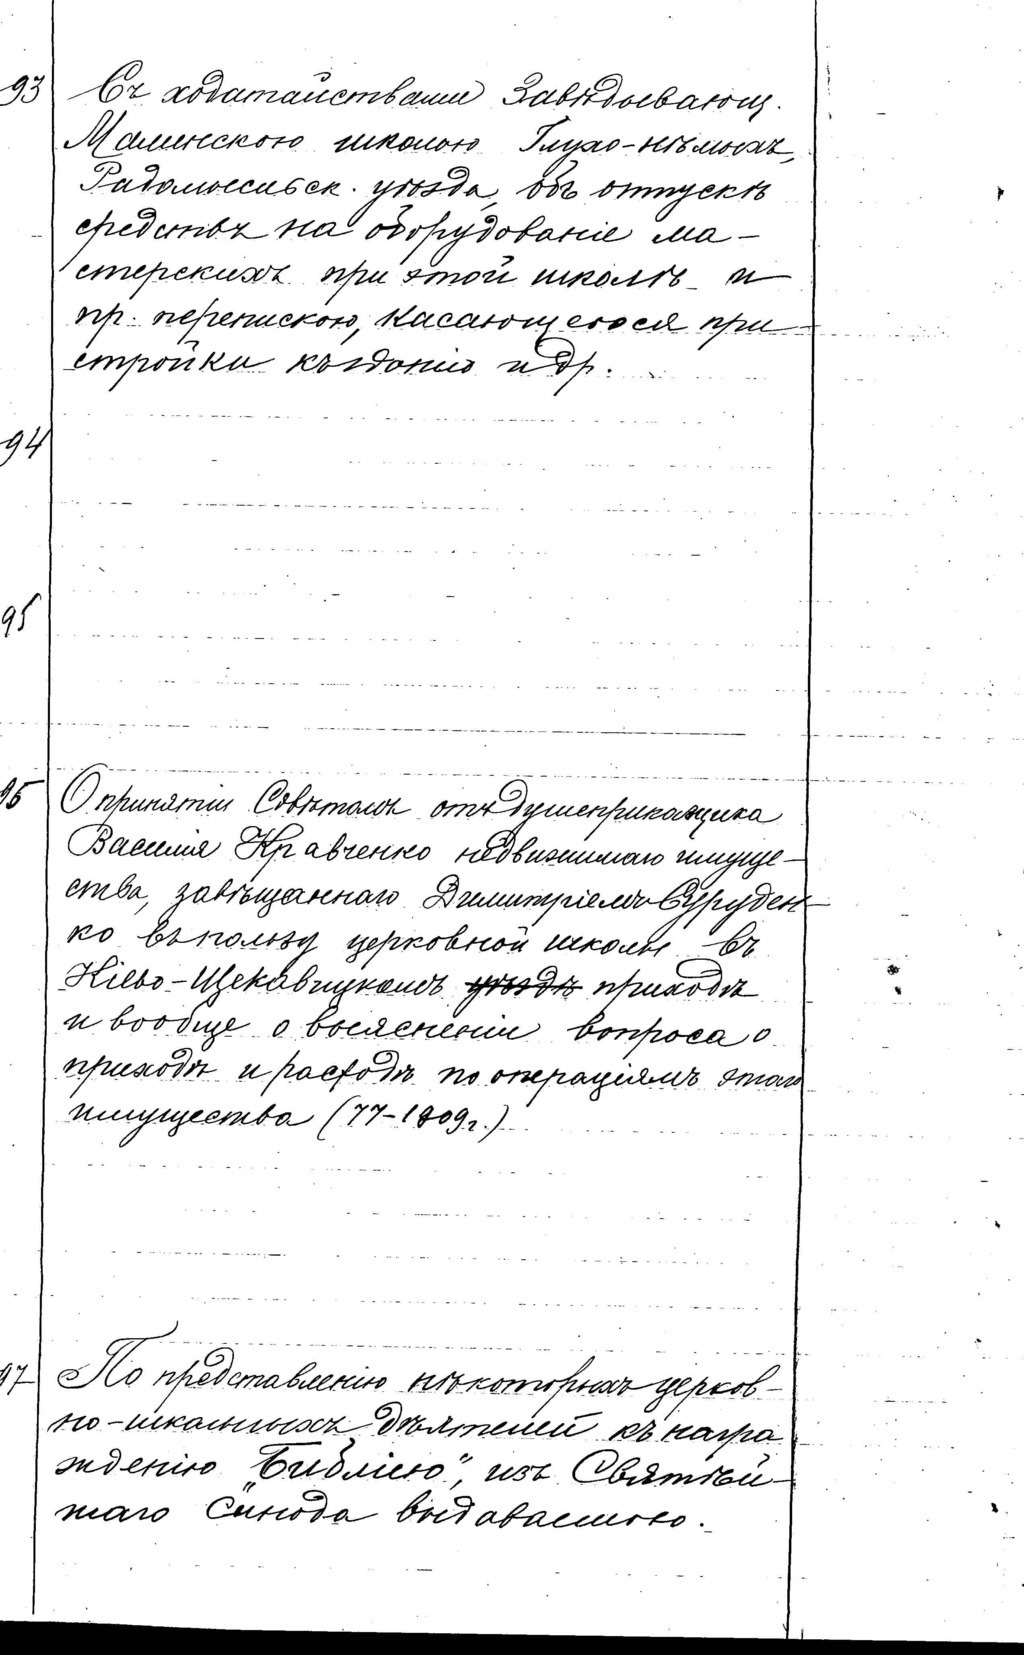 93 Съ ходатайствами Завѣдывающ.
Малинскою школою Глухо-нѣмыхъ,
Радомысльск. уѣзда, объ отпускѣ
средствъ на оборудованіе ма-
стерскихъ при этой школѣ и
пр. перепискою, касающегося при
стройки къ зданію и др.
94
95
96 О принятіи Совѣтомъ отъ душеприказщика
Василія Кравченко недвижимаго имуще-
ства, завѣщаннаго Димитріемъ Суруден
ко въ пользу церковной школы въ
Кіево-Щекавицкомъ уѣздѣ приходѣ
и вообще о выясненіи вопроса о
приходѣ и расходѣ по операціямъ этого
имущества (77-1909г.)
97 По представленію нѣкоторыхъ церков-
но-школьныхъ дѣятелей къ награ
жденію „Библіею", изъ Святѣй-
шаго Синода выдаваемою.